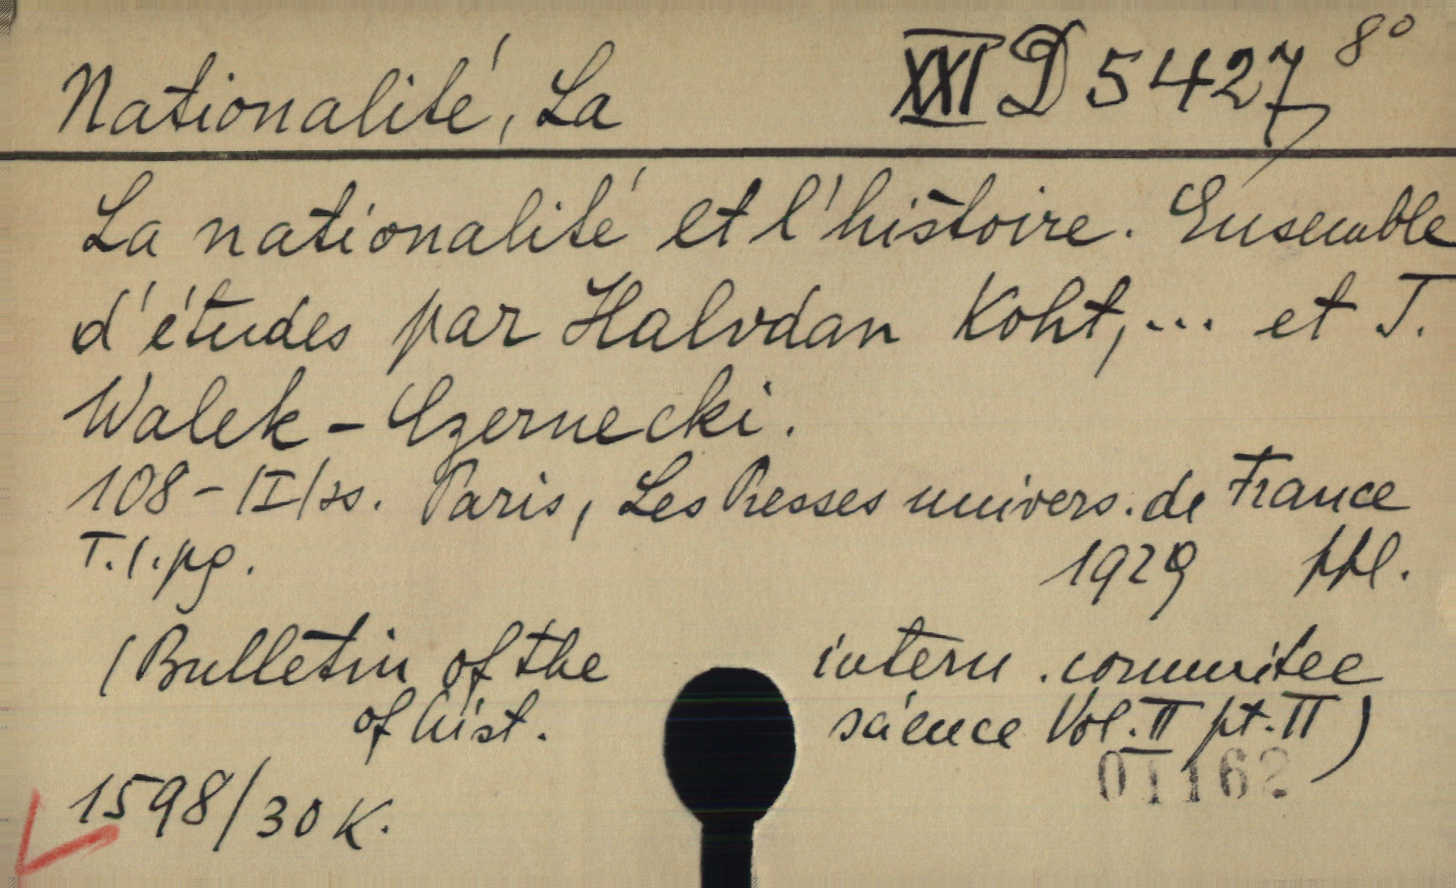 Nationalité, La XXI D 5427 8°
La nationalité et l'histoire. Ensemble
d'études par Halvdan Koht, ... et T.
Walek-Czernecki.
108-/I/ss. Paris, Les Presses univers. de France
T.1.pg. 1929 ppl.
(Bulletin of the intern. committee
of hist. science Vol. II pt. II)
01162
1598/30 K.